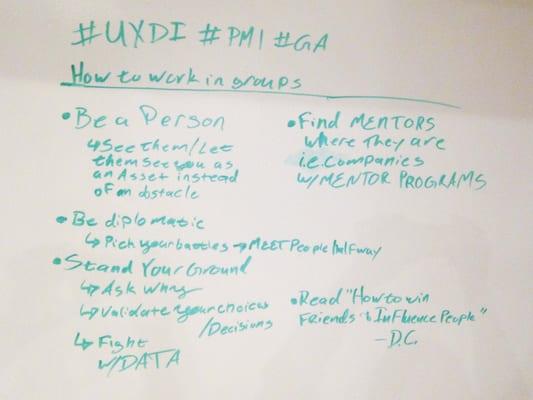 #UXDI #PM1 #GA
How to work in groups
• Be a Person
↳ See them/Let
them see you as
an Asset instead
of an obstacle
• Be diplomatic
↳ Pick your battles → MEET People halfway
• Stand Your Ground
↳ Ask Why
↳ Validate your choices
/Decisions
↳ Fight
w/DATA
• Find MENTORS
where they are
i.e. companies
w/MENTOR PROGRAMS
• Read "How to win
Friends & Influence People"
– D.C.